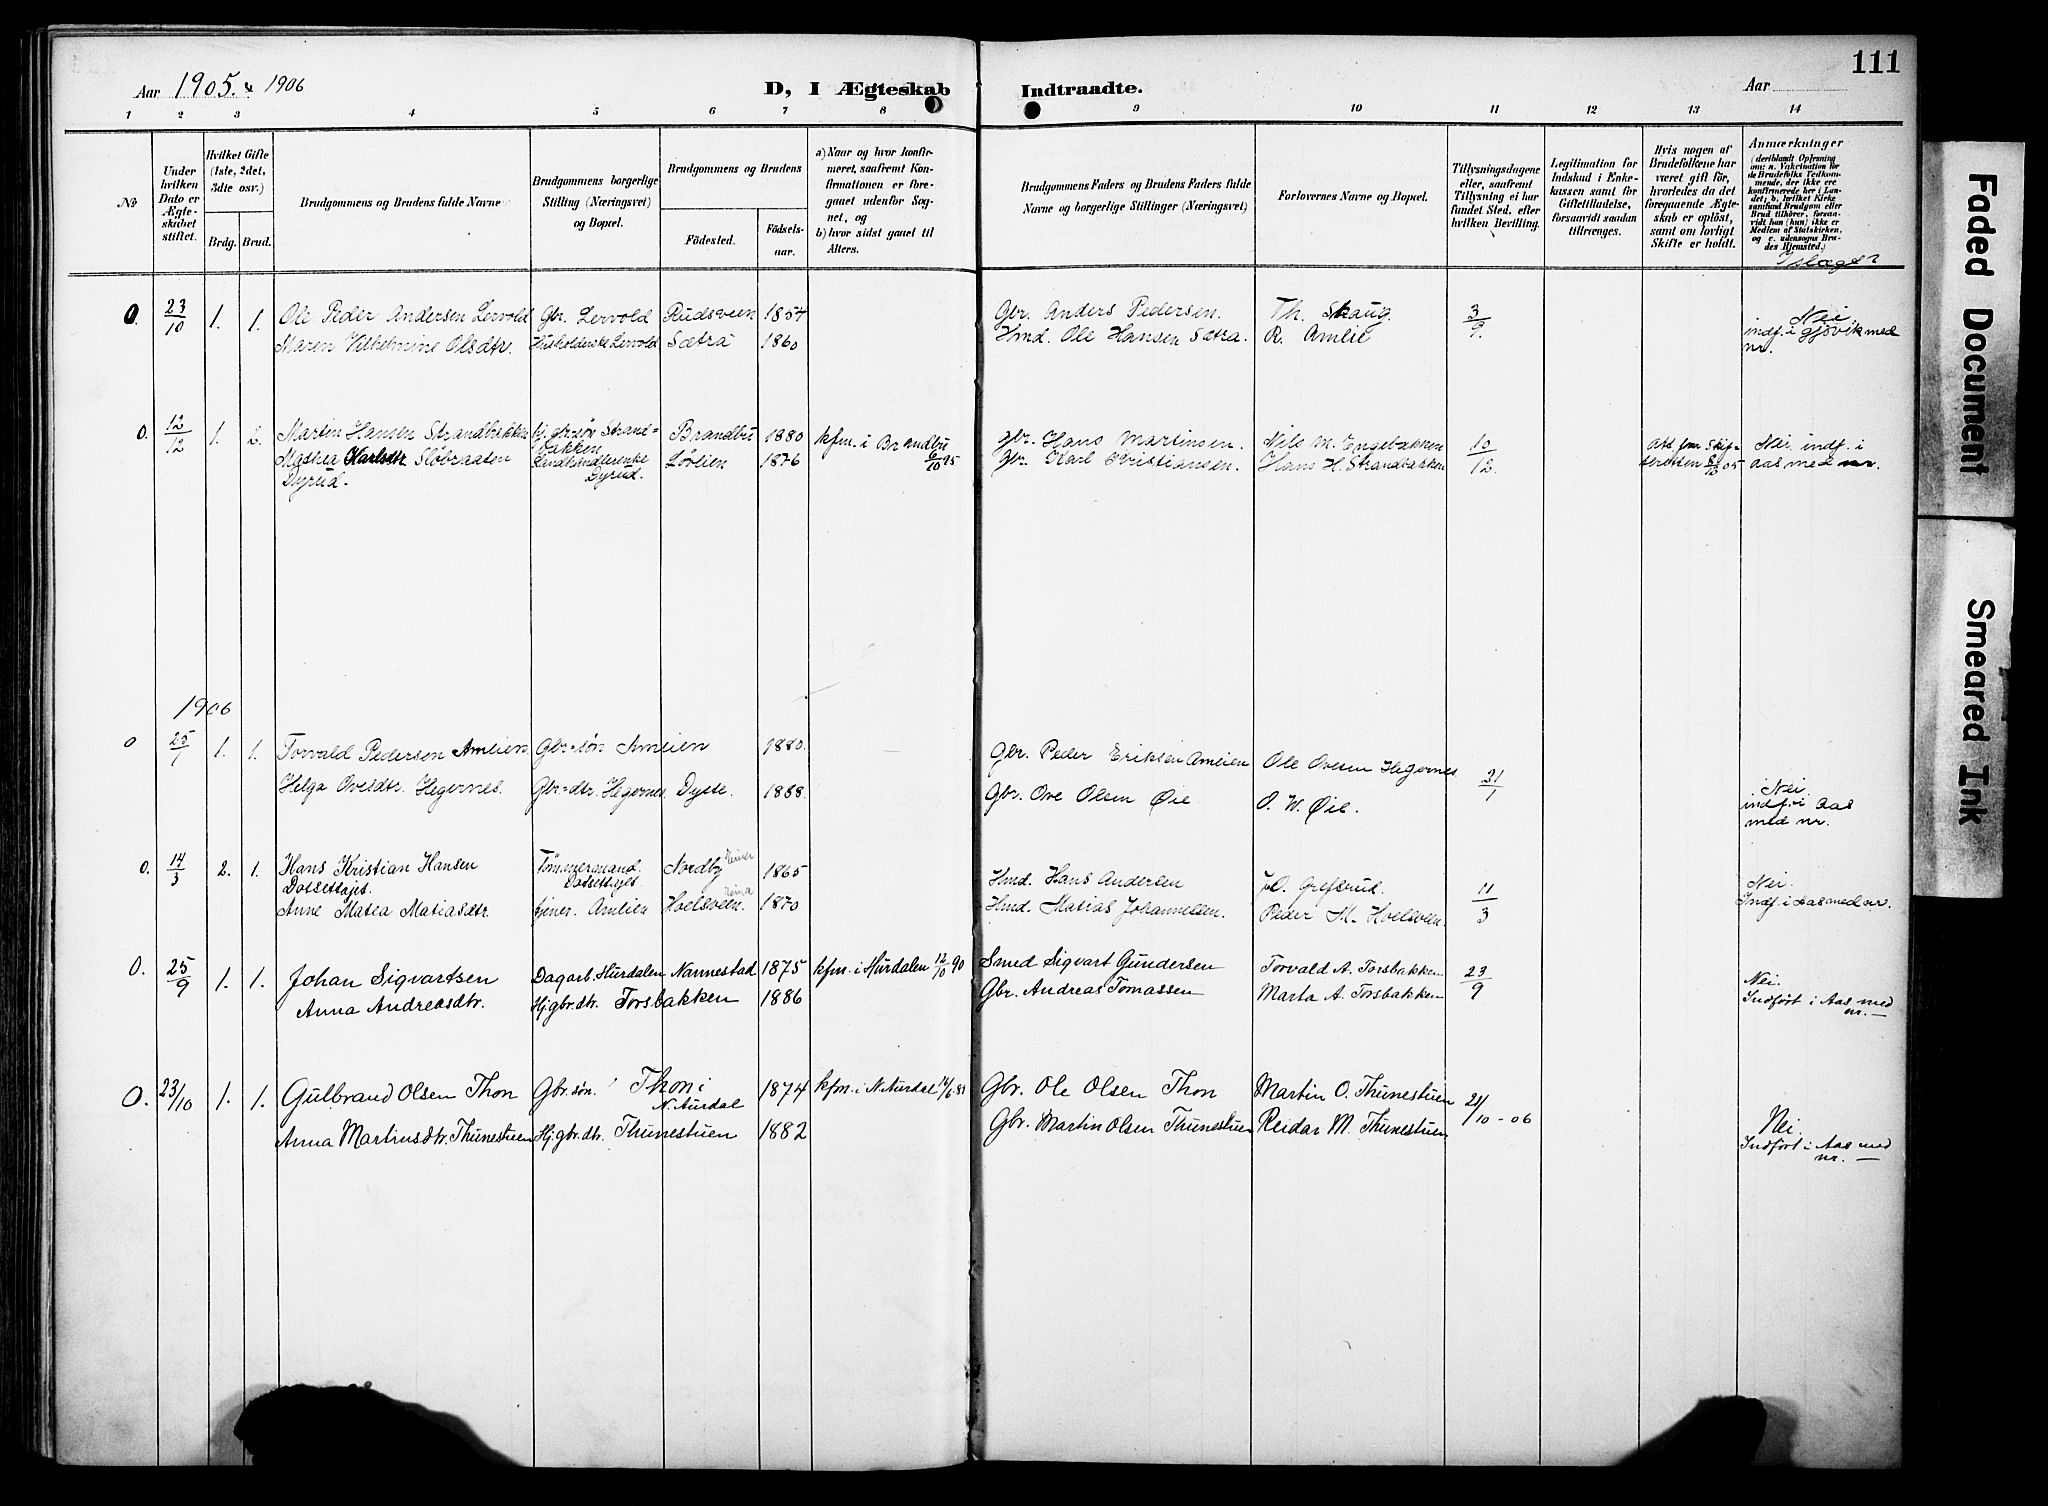 111
Aar 1905. & 1906
D, I Ægteskab Indtraadte.
Aar
1 2 3 4 5 6 7 8 9 10 11 12 13 14
№
Under hvilken Dato er Ægteskabet stiftet.
Hvilket Gifte (1ste, 2det, 3die osv.)
Brdg. Brud.
Brudgommens og Brudens fulde Navne
Brudgommens borgerlige Stilling (Næringsvei) og Bopæl.
Brudgommens og Brudens
Födested. Födselsaar.
a) Naar og hvor konfirmeret, saafremt Konfirmationen er foregaaet udenfor Sognet, og
b) hvor sidst gaaet til Alters.
Brudgommens Faders og Brudens Faders fulde Navne og borgerlige Stillinger (Næringsvei)
Forlovernes Navne og Bopæl.
Tillysningsdagene eller, saafremt Tillysning ei har fundet Sted, efter hvilken Bevilling.
Legitimation for Indskud i Enkekassen samt for Giftetilladelse, forsaavidt saadan tiltrænges.
Hvis nogen af Brudefolkene har været gift för, hvorledes da det foregaaende Ægteskab er oplöst, samt om lovligt Skifte er holdt.
Anmærkninger
(deriblandt Oplysning om: a. Vakcination for de Brudefolks Vedkommende, der ikke ere konfirmerede her i Landet; b. hvilket Kirkesamfund Brudgom eller Brud tilhörer, forsaavidt han (hun) ikke er Medlem af Statskirken, og c. udensogns Brudes Hjemsted.)
I slægt?
O. 23/10 1. 1. Ole Peder Andersen Lervold Gbr. Lervold Rudsveen 1854 Gbr. Anders Pedersen. Th. Skaug. 3/9. Nei
Maren Vilhelmine Olsdtr. Husholderske Lervold Sætra 1860 Hmd. Ole Hansen Sætra. R. Amlie indf. i Gjøvik med nr.
O. 12/12 1. 2. Martin Hansen Strandbakken hj. gbr.søn Strandbakken Brandbu 1880 kfm. i Brandbu 6/10 95 gbr. Hans Martinsen. Nils M. Engebakken 10/12. Att. fra Skifteretten 8/12 05 Nei. indf. i aas med nr.
Mathea Karlsdtr Sløbraaten Dyrud. Landhandlerenke Dyrud. Lørlien 1876 gbr. Karl Kristiansen. Hans H. Strandbakken
1906
O 25/1 1. 1. Torvald Pedersen Amlien. Gbr.søn Amlien 1880. Gbr. Peder Eriksen Amlien Ole Ovesen Hegernes 21/1
Helga Ovesdtr. Hegernes. Gbr.dtr. Hegernes. Dyste. 1888. Gbr. Ove Olsen Øie O. W. Øie. Nei. indf. i aas med nr.
O. 14/3 2. 1. Hans Kristian Hansen Dossettajet. Tømmermand Dossettajet Nordby 1865 Hmd. Hans Andersen O. Grefsrud. 11/3 Nei.
Anne Matea Matiasdtr. tjener. Amlien Hoelsveen. 1870 Hmd. Matias Johannessen. Peder M. Hoelsveen. Indf. i aas med nr.
O. 25/9 1. 1. Johan Sigvartsen Dagarb. Hurdalen Nannestad 1875 kfm. i Hurdalen 12/10 90 Smed Sigvart Gundersen Torvald A. Torsbakken 23/9 Nei.
Anna Andreasdtr. Hj. gbr.dtr. Torsbakken 1886 Gbr. Andreas Tomassen Marta A. Torsbakken Indført i Aas med nr. —
O. 23/10 1. 1. Gulbrand Olsen Thon Gbr.søn. Thon i N. Aurdal 1874 kfm. i N. Aurdal Gbr. Ole Olsen Thon Martin O. Thunestuen 21/10-06
Anna Martinsdtr. Thunestuen Hj. gbr.dtr. Thunestuen 1882 Gbr. Martin Olsen Thunestuen Reidar M. Thunestuen Nei. Indført i Aas med nr. —
Faded Document
Smeared Ink